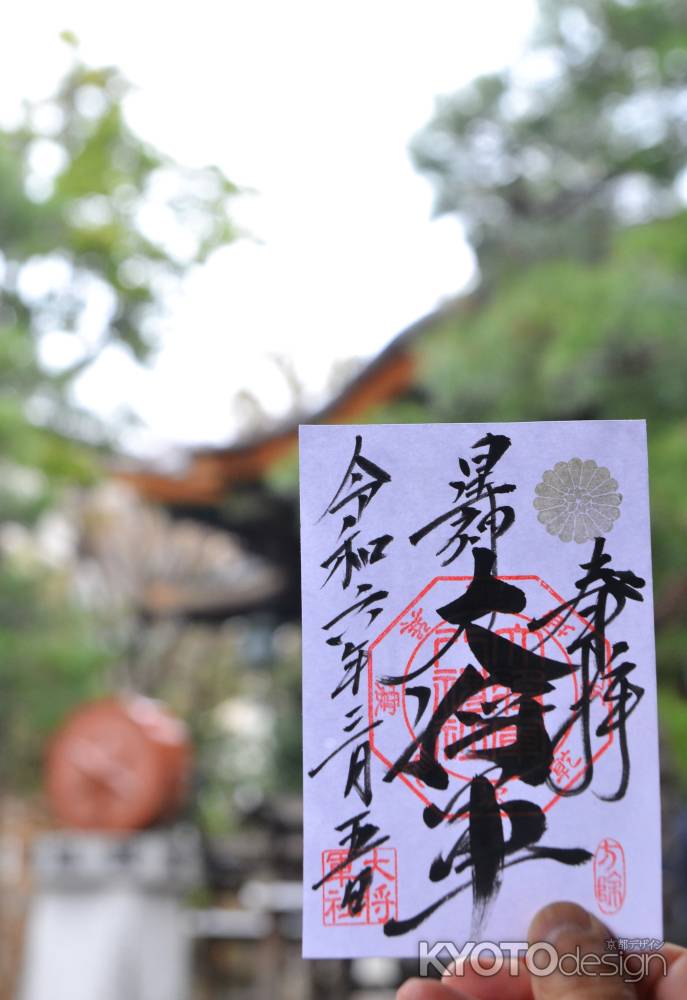 奉拝
星神
大将軍
令和六年三月五日
大将
軍社
方除
京都デザイン
KYOTOdesign